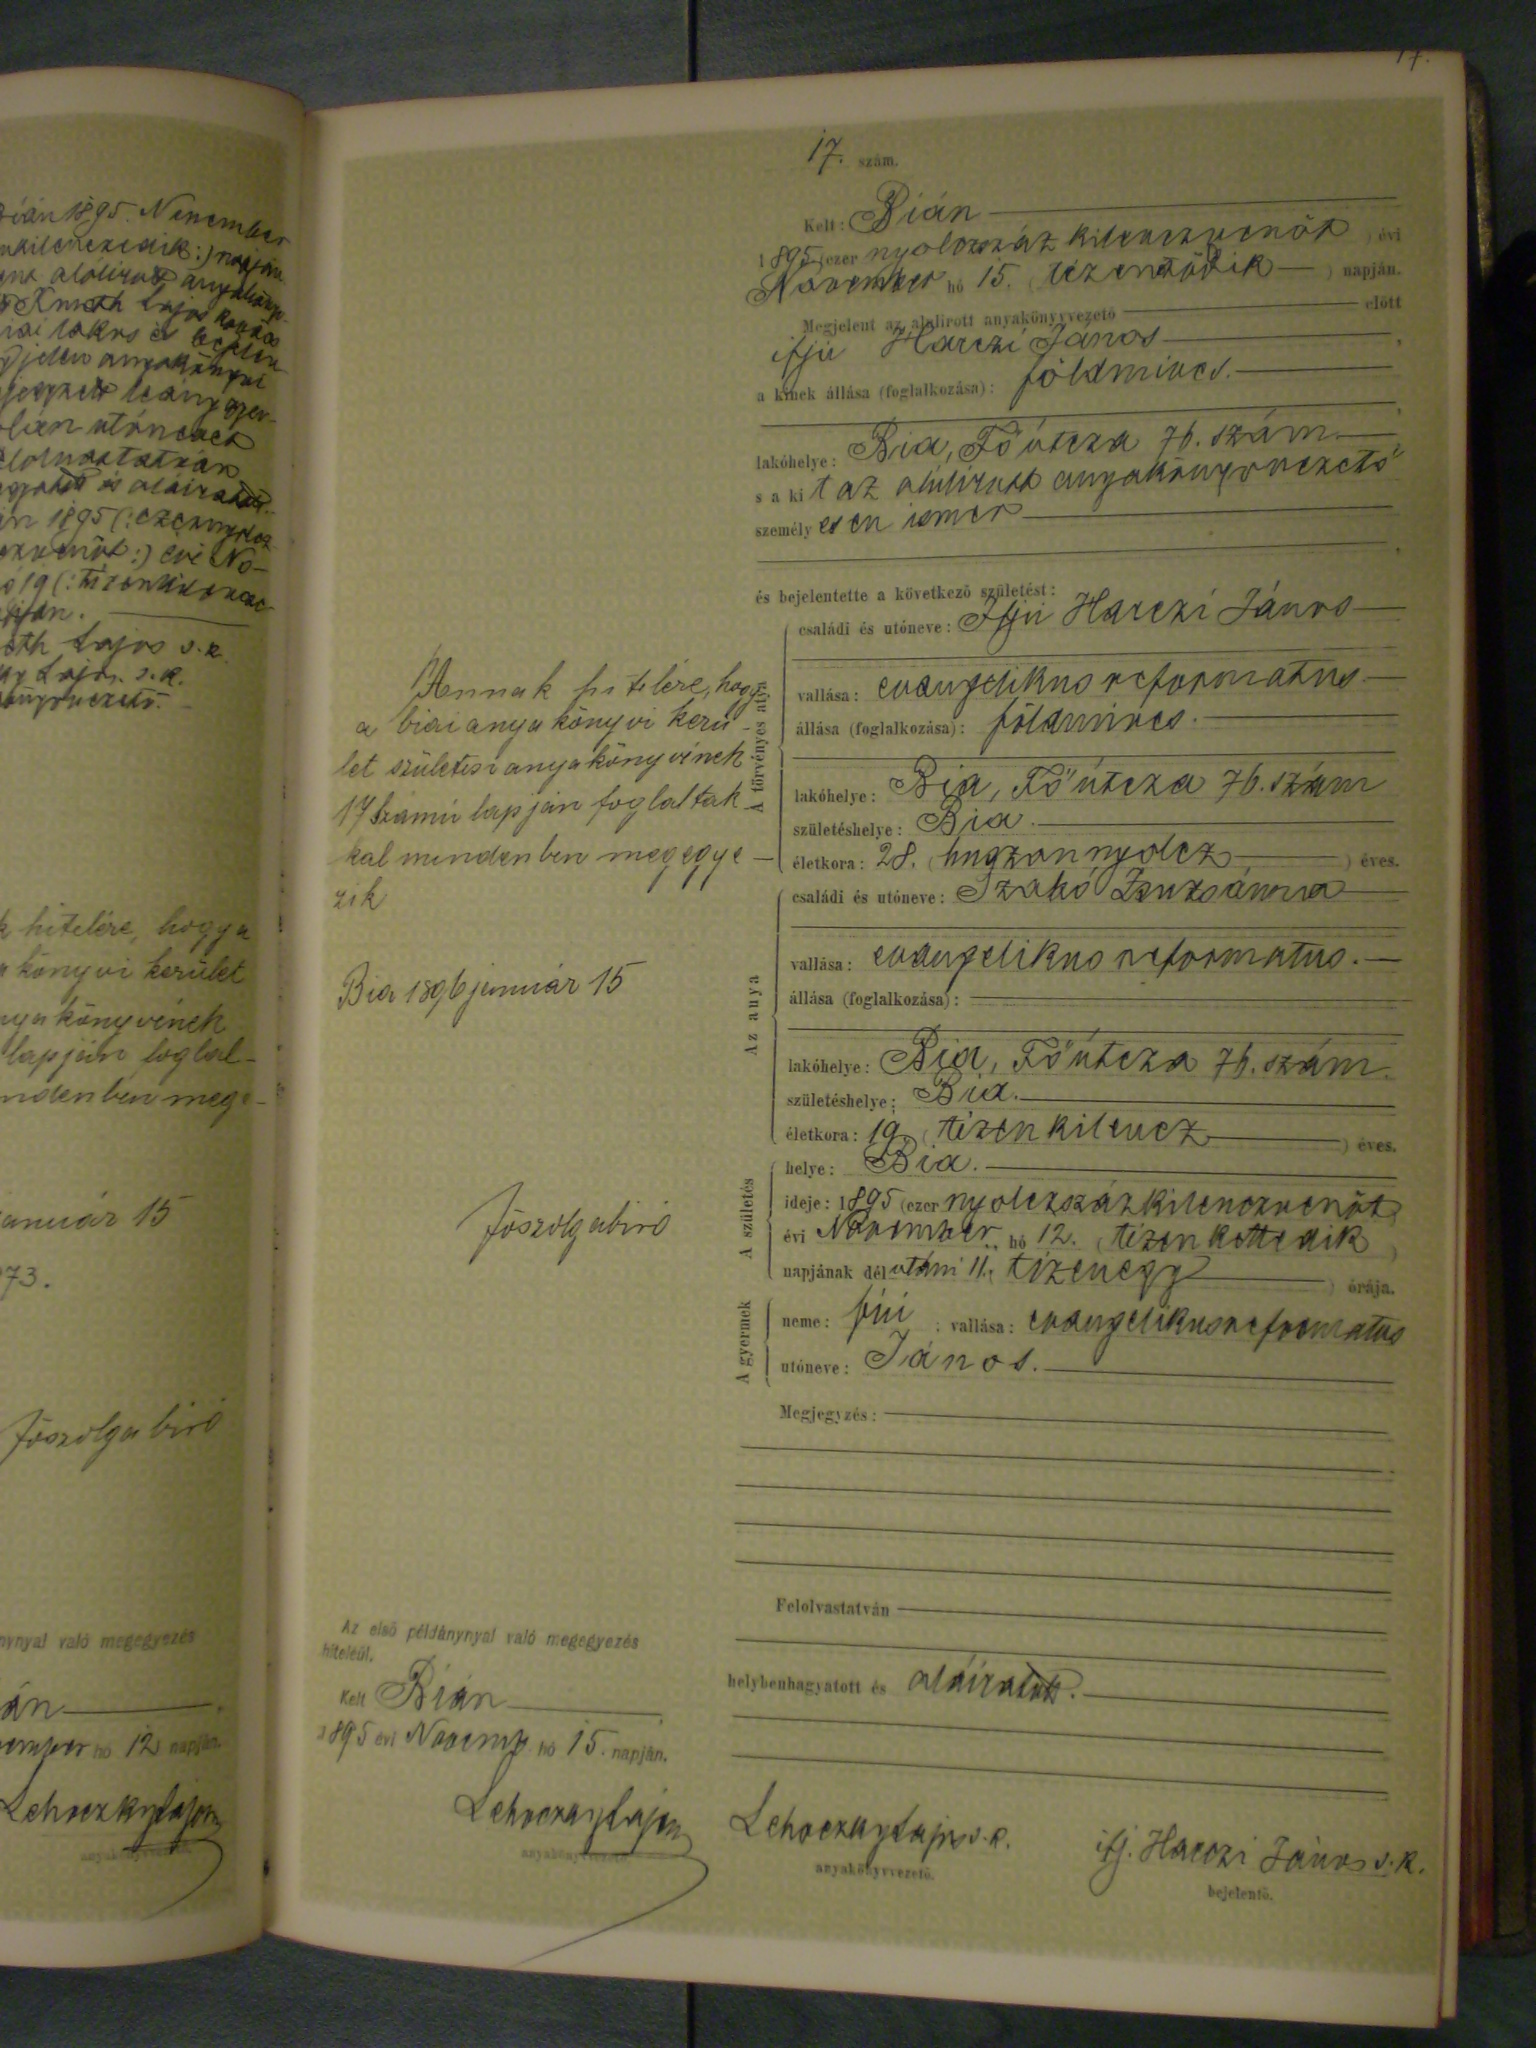 17.
17. szám.
Kelt: Bián
1895 (ezer nyolczszáz kilenczvenöt ) évi
November hó 15. (tizenötödik ) napján.
Megjelent az alulirott anyakönyvvezető előtt
ifjú Harczi János
a kinek állása (foglalkozása): földmíves.
lakóhelye: Bia, Fő útcza 76. szám
s a ki t az alúlirott anyakönyvvezető
személy esen ismer
és bejelentette a következő születést:
A törvényes atya
családi és utóneve: Ifjú Harczi János
vallása: evangelikus reformatus.
állása (foglalkozása): földmíves.
lakóhelye: Bia, Fő útcza 76. szám
születéshelye: Bia.
életkora: 28. (huszonnyolcz ) éves.
Az anya
családi és utóneve: Szakó Zsuzsánna
vallása: evangelikus reformatus.
állása (foglalkozása):
lakóhelye: Bia, Fő útcza 76. szám.
születéshelye: Bia.
életkora: 19. (tizenkilencz ) éves.
A születés
helye: Bia.
ideje: 1895 (ezer nyolczszázkilenczvenöt)
évi November hó 12. (tizenkettedik )
napjának délutáni 11. tizenegy ) órája.
A gyermek
neme: fiú ; vallása: evangelikus reformatus
utóneve: János.
Megjegyzés:
Felolvastatván
helybenhagyatott és aláiratott.
Lehoczky Lajos s. k.
anyakönyvvezető.
ifj. Harczi János s. k.
bejelentő.
Annak hitelére, hogy
a biai anyakönyvi kerü-
let születési anyakönyvének
17 számú lapján foglaltak
kal mindenben megegye
zik
Bia 1896 január 15
főszolgabiró
Az első példánynyal való megegyezés
hiteléül.
Kelt Bián
1895 évi Novemb. hó 15. napján.
Lehoczky Lajos
anyakönyvvezető.
Bián 1895. November
napján
alólirott anyakönyv-
Knuth Lajos
lakos
jelen anyakönyvi
leánygyer-
utónevet
aláiratott.
1895 (: ezernyolcz-
:) évi No-
19 (: tizenkilencz
Lajos s. k.
Lajos s. k.
hitelére, hogy a
könyvi kerület
anyakönyvének
lapján foglal-
mindenben mege-
január 15
73.
főszolgabiró
való megegyezés
hó 12 napján.
Lehoczky Lajos
anyakönyvvezető.